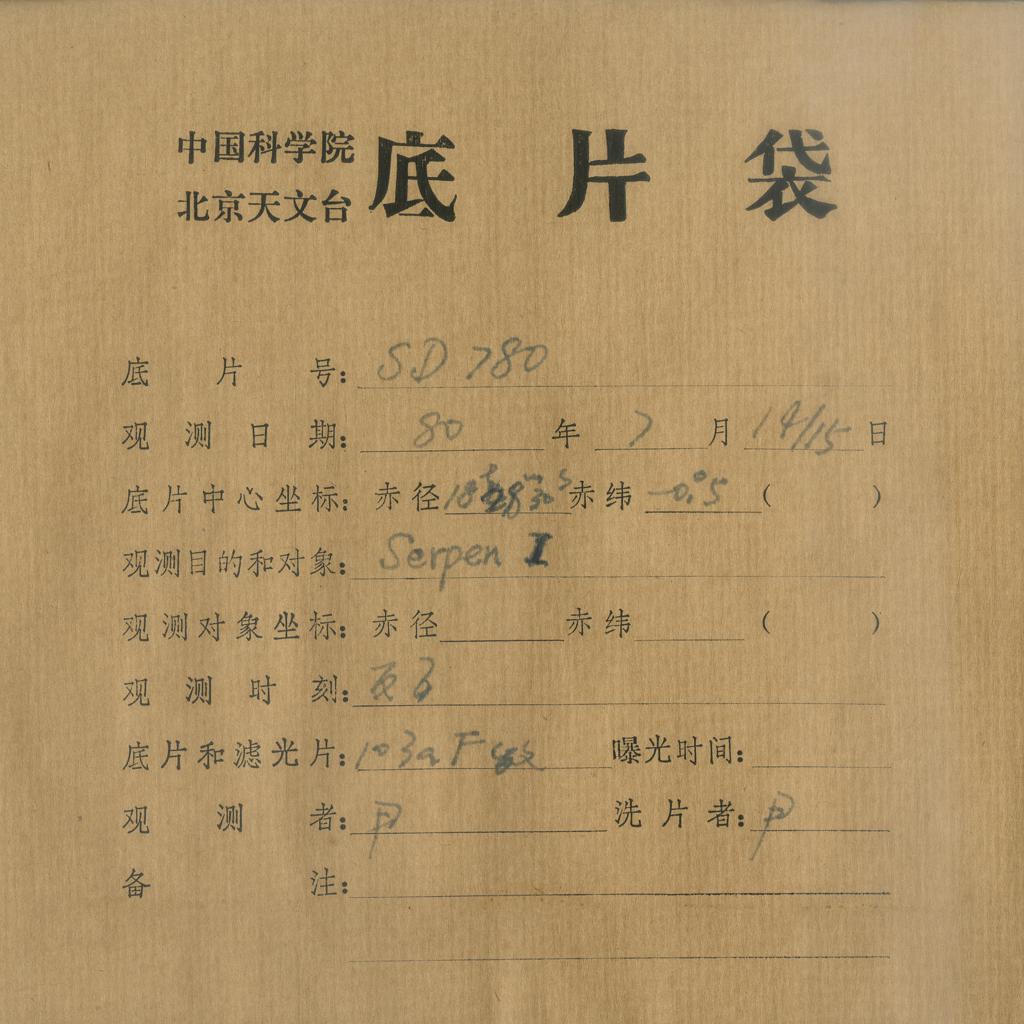 中国科学院
北京天文台
底片袋
底片号: SD 780
观测日期: 80 年 7 月 14/15 日
底片中心坐标: 赤径 18h28m30s 赤纬 -0°.5 ( )
观测目的和对象: Serpen I
观测对象坐标: 赤径 赤纬 ( )
观测时刻:
底片和滤光片: 103aF 曝光时间:
观测者: 尹 洗片者: 尹
备注: